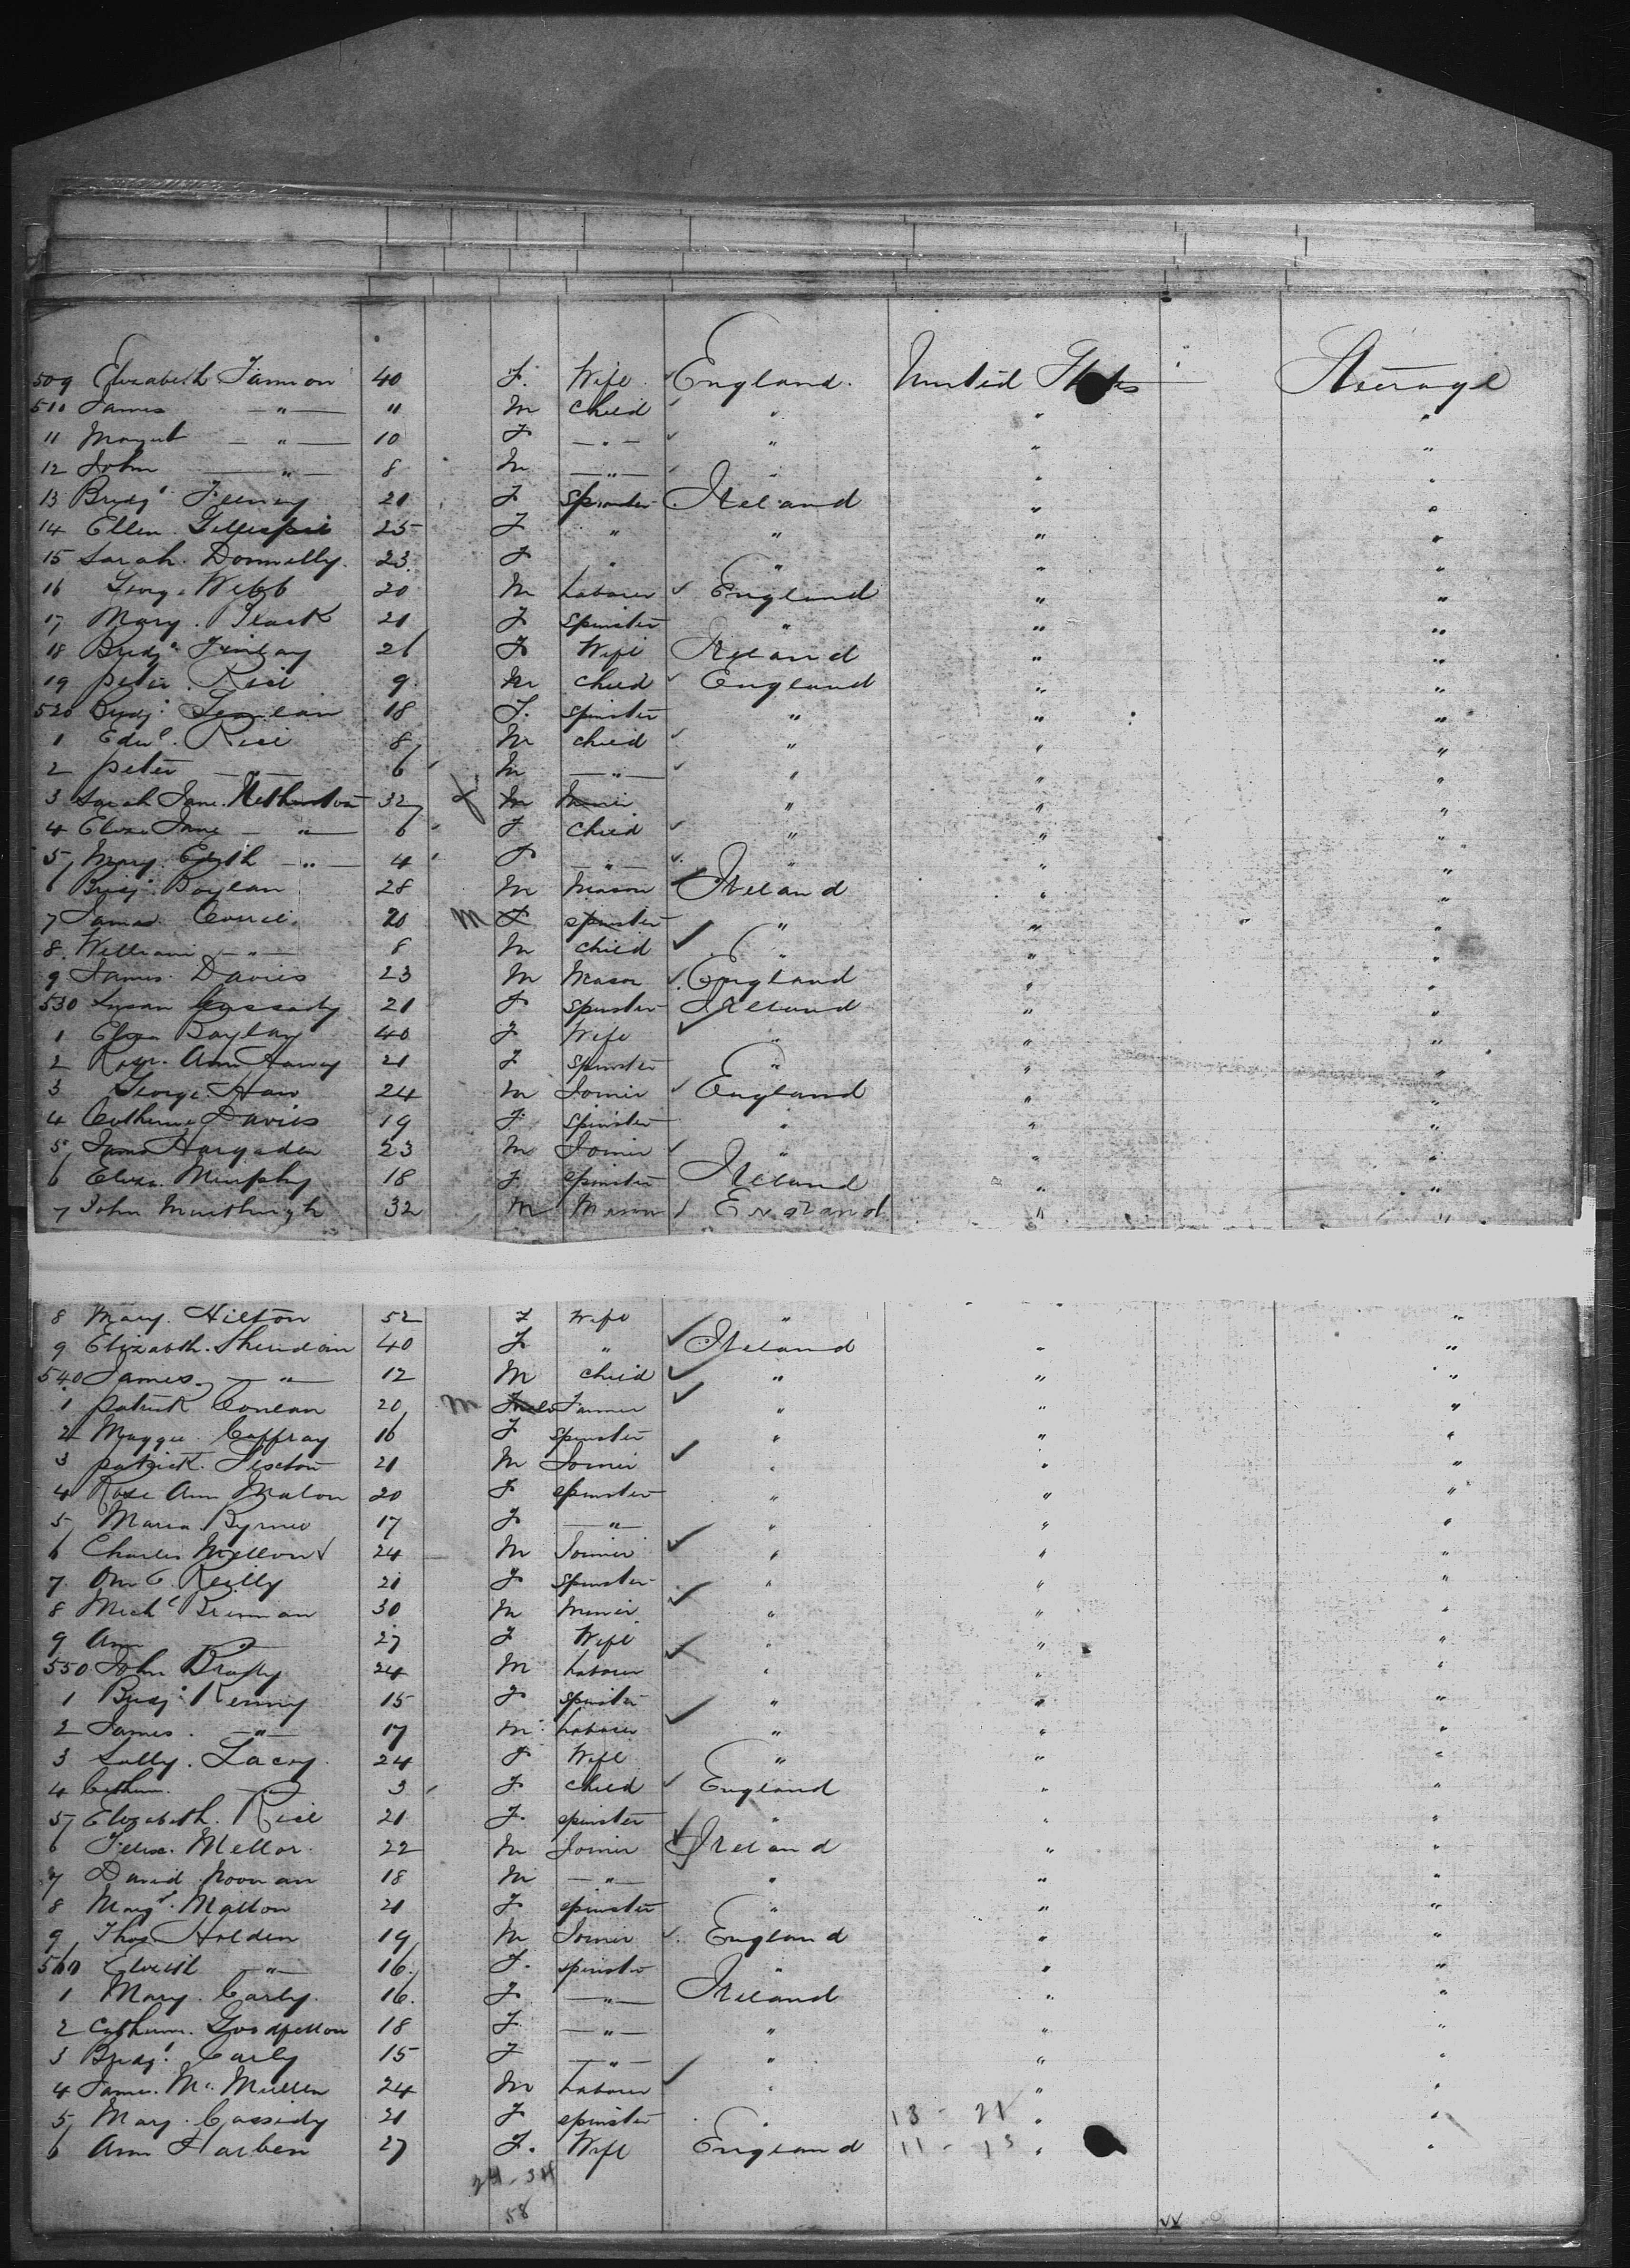 509 Elizabeth 40 F. Wife England. United States Steerage
510 James — " — 11 M Child " " "
11 Margret — " — 10 F — " — " " "
12 John — " — 8 M — " — " " "
13 Bridgt 21 F Spinster Ireland " "
14 Ellen Gillespie 25 F " " " "
15 Sarah. Donnelly. 23 F " " " "
16 Webb 20 M Labourer England " "
17 Mary. 21 F Spinster " " "
18 Bridgt 26 F Wife Ireland " "
19 Peter. Rice 9 M Child England " "
520 Bridgt 18 F. Spinster " " "
1 Edwd. Rice 8 M Child " " "
2 Peter — " — 6 M — " — " " "
3 Sarah Jane. 32 M Miner " " "
4 Eliza Jane — " — 6 F Child " " "
5 Mary. — " — 4 F — " — " " "
6 Bridgt Boylan 28 M Mason Ireland " "
7 20 M F Spinster " " "
8. William — " — 8 M Child " " "
9 James. Davies 23 M Mason England " "
530 Susan Cassady 21 F Spinster Ireland " "
1 Eliza 40 F Wife " " "
2 Ann 21 F Spinster " " "
3 George 24 M Joiner England " "
4 Catherine Davies 19 F. Spinster " " "
5 James Hargaden 23 M Joiner " " "
6 Eliza. Murphy 18 F. Spinster Ireland " "
7 John 32 M Mason England " "
8 Mary. Hilton 52 F Wife " "
9 Elizabth. Sheridan 40 F " Ireland " "
540 James. — " — 12 M Child " " "
1 Patrick Conlan 20 M Farmer " " "
2 Maggie. Caffray 16 F Spinster " " "
3 Patrick. Sexton 21 M Joiner " " "
4 Rose Ann Malon 20 F Spinster " " "
5 Maria Byrne 17 F — " — " " "
6 Charles 24 M Joiner " " "
7. Reilly 21 F Spinster " " "
8 Michl Brennan 30 M Miner " " "
9 Ann — " — 27 F Wife " " "
550 John Brady 24 M Labourer " " "
1 Bridgt Kenny 15 F Spinster " " "
2 James. — " — 17 M Labourer " " "
3 Sally. Lacey. 24 F Wife " " "
4 — " — 3 F Child England " "
5 Elizabeth. Rice 21 F. Spinster " " "
6 Mellor. 22 M Joiner Ireland " "
7 David Noonan 18 M — " — " " "
8 Margt. 21 F Spinster " " "
9 Thos Holden 19 M Joiner England " "
560 — " — 16. F. Spinster " " "
1 Mary. 16. F — " — Ireland " "
2 Goodfellow 18 F — " — " " "
3 Bridgt. 15 F — " — " " "
4 James. Mc. Mullen 24 M Labourer " " "
5 Mary. Cassidy 21 F Spinster " 13 - 21 " "
6 Ann Harben 27 F. Wife England 11 - 13 " "
24 - 34
58